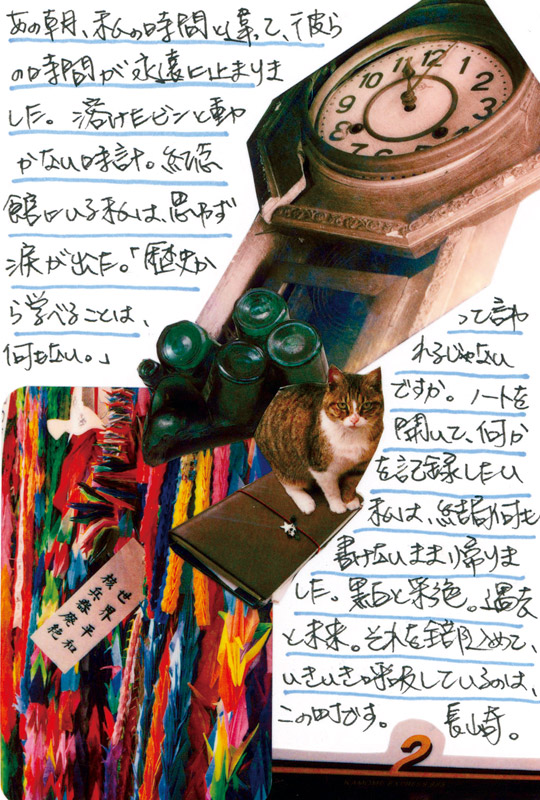 あの朝、私の時間と違って、彼ら
の時間が永遠に止まりま
した。溶けたビンと動
かない時計。紀念
館にいる私は、思わず
涙が出た。「歴史か
ら学べることは、
何もない。」
って言わ
れるじゃない
ですか。ノートを
開いて、何か
を記録したい
私は、結局何も
書けないまま帰りま
した。黒白と彩色。過去
と未来。それを錯り込めて、
いきいき呼吸しているのは、
この町です。 長崎。
12
1
2
3
4
5
7
8
9
10
11
世界平和
核兵器廃絶
2